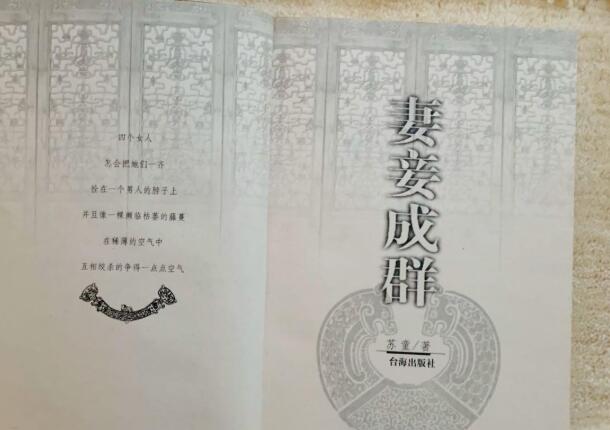 四个女人
怎会把她们一齐
拴在一个男人的脖子上
并且像一棵濒临枯萎的藤蔓
在稀薄的空气中
互相绞杀的争得一点点空气
妻妾成群
苏童/著
台海出版社